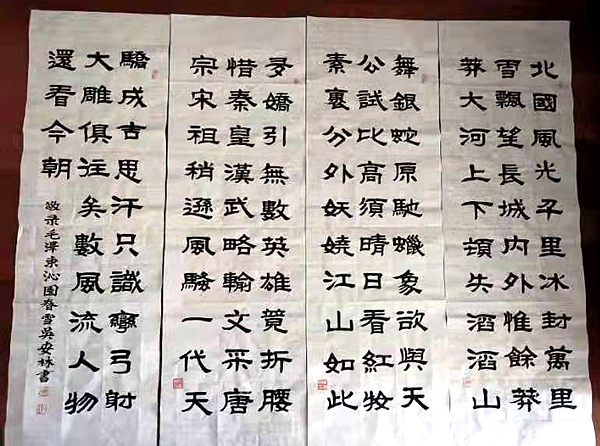 北國風光千里冰封萬里
雪飄望長城內外惟餘莽
莽大河上下頓失滔滔山
舞銀蛇原馳蠟象欲與天
公試比高須晴日看紅妝
素裹分外妖嬈江山如此
多嬌引無數英雄竟折腰
惜秦皇漢武略輸文采唐
宗宋祖稍遜風騷一代天
驕成吉思汗只識彎弓射
大雕俱往矣數風流人物
還看今朝
敬录毛澤東沁園春雪吳安林書